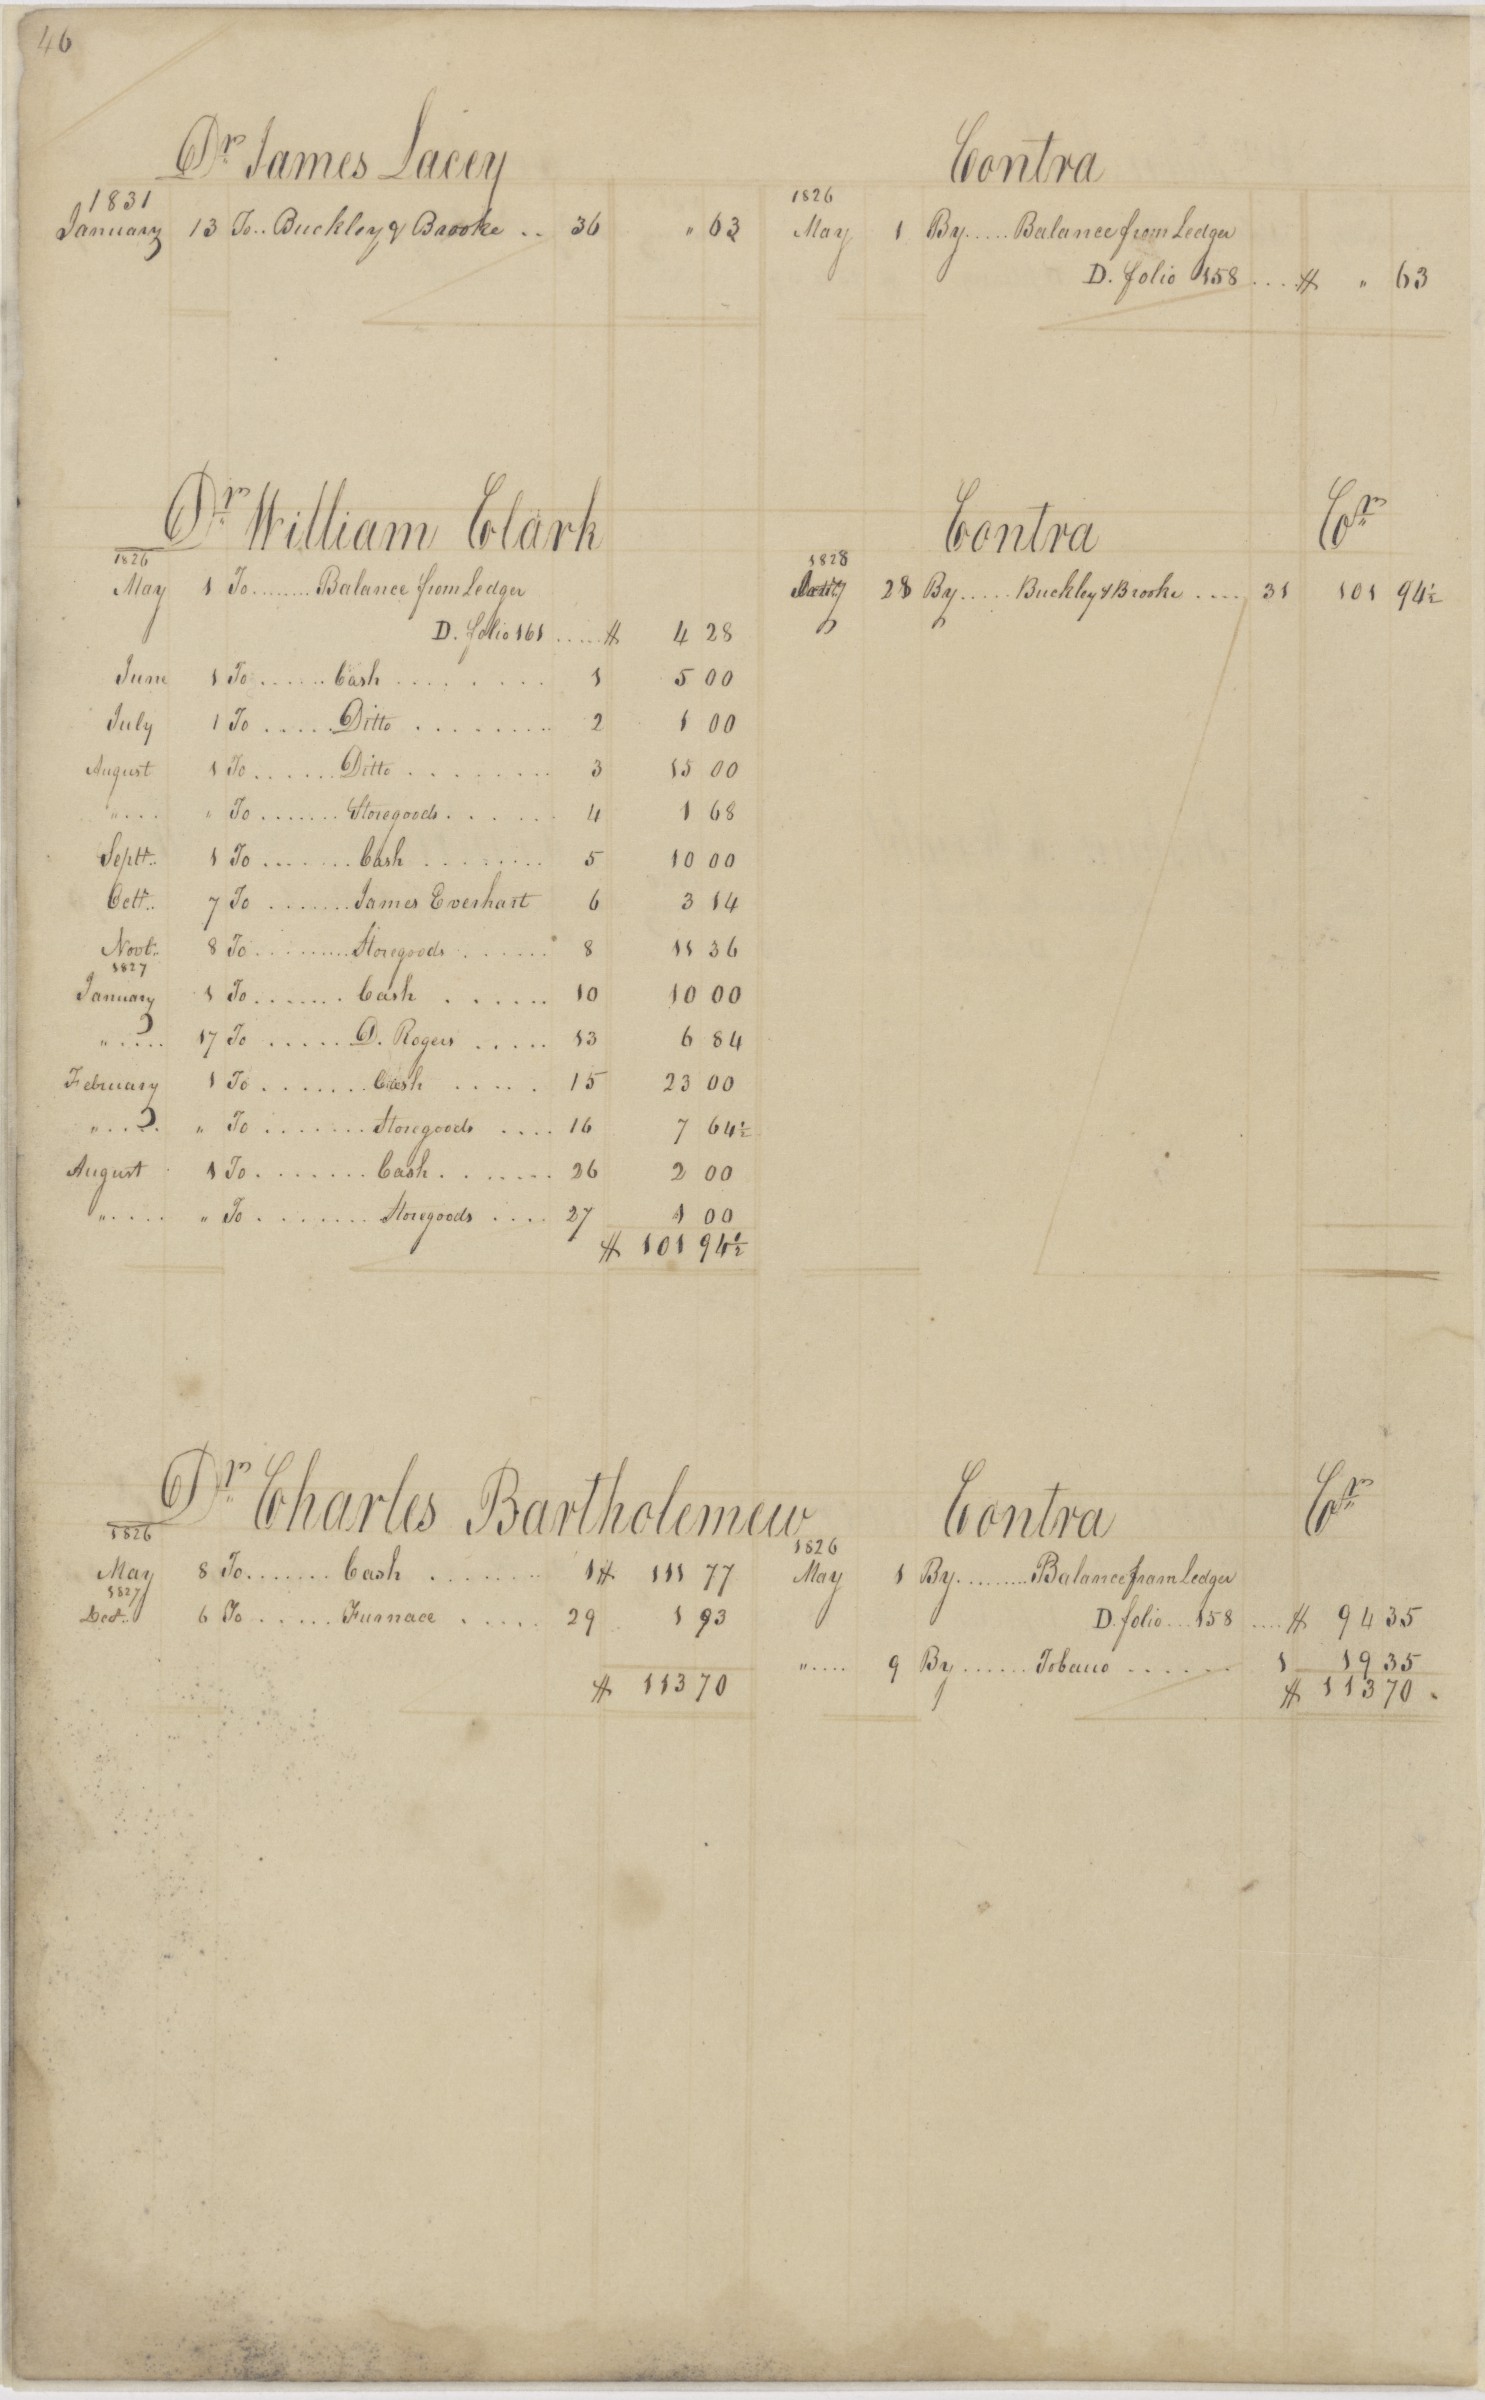 46
Dr James Lacey
1831
January 13 To.. Buckley & Brooke .. 36 " 63
Contra
1826
May 1 By..... Balance from Ledger
D. folio 158 ... $ " 63
Dr William Clark
1826
May 1 To........ Balance from Ledger
D. folio 161 ..... $ 4 28
June 1 To ...... Cash ........ 1 5 00
July 1 To ..... Ditto ........ 2 1 00
August 1 To ...... Ditto ........ 3 15 00
".... " To ....... Storegoods ...... 4 1 68
Septr.. 1 To ....... Cash ........ 5 10 00
Octr.. 7 To ....... James Everhart 6 3 14
Novbr.. 8 To ......... Storegoods ...... 8 11 36
1827
January 1 To ....... Cash ...... 10 10 00
"..... 17 To ..... D. Rogers ..... 13 6 84
February 1 To ....... Cash ..... 15 23 00
"..... " To ....... Storegoods .... 16 7 64½
August 1 To ....... Cash ....... 26 2 00
"..... " To ........ Storegoods .... 27 1 00
$ 101 94½
Contra Cr
1828
28 By ..... Buckley & Brooke .... 31 101 94½
Dr Charles Bartholemew
1826
May 8 To ....... Cash ....... 1 $ 111 77
1827
Dect.. 6 To ...... Furnace ..... 29 1 93
$ 113 70
Contra Cr
1826
May 1 By ......... Balance from Ledger
D. folio ... 158 .... $ 94 35
"..... 9 By ...... Tobacco ...... 1 19 35
$ 113 70